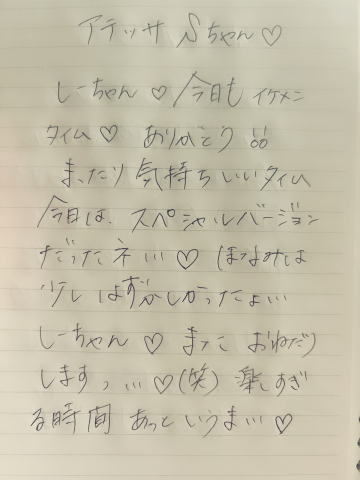 アテッサ Sちゃん♡
しーちゃん♡今日も イケメン
タイム♡ ありがとう
まったり 気持ちいいタイム
今日は、スペシャルバージョン
だったネ…♡
少しはずかしかったょ…
しーちゃん♡ また おねだり
しますっ…♡(笑) 楽しすぎ
る時間 あっというま…♡